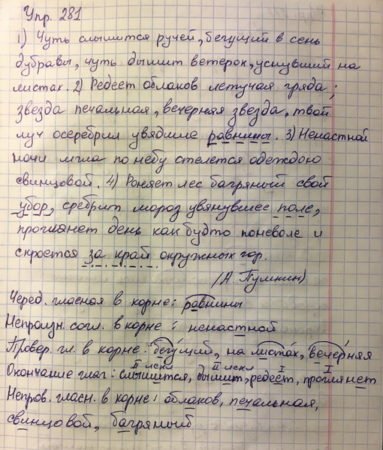 Упр. 281
1) Чуть слышится ручей, бегущий в сень
дубравы, чуть дышит ветерок, уснувший на
листах. 2) Редеет облаков летучая гряда;
звезда печальная, вечерняя звезда, твой
луч осеребрил увядшие равнины. 3) Ненастной
ночи мгла по небу стелется одеждою
свинцовой. 4) Роняет лес багряный свой
убор, сребрит мороз увянувшее поле,
проглянет день как будто поневоле и
скроется за край окружных гор.
(А Пушкин)
Черед. гласная в корне: равнины
Непроизн. согл. в корне: ненастной
Провер. гл. в корне: бегущий, на листах, вечерняя
II искл II искл I I
Окончание глаг: слышится, дышит, редеет, проглянет
Непров. гласн. в корне: облаков, печальная,
свинцовой, багряный